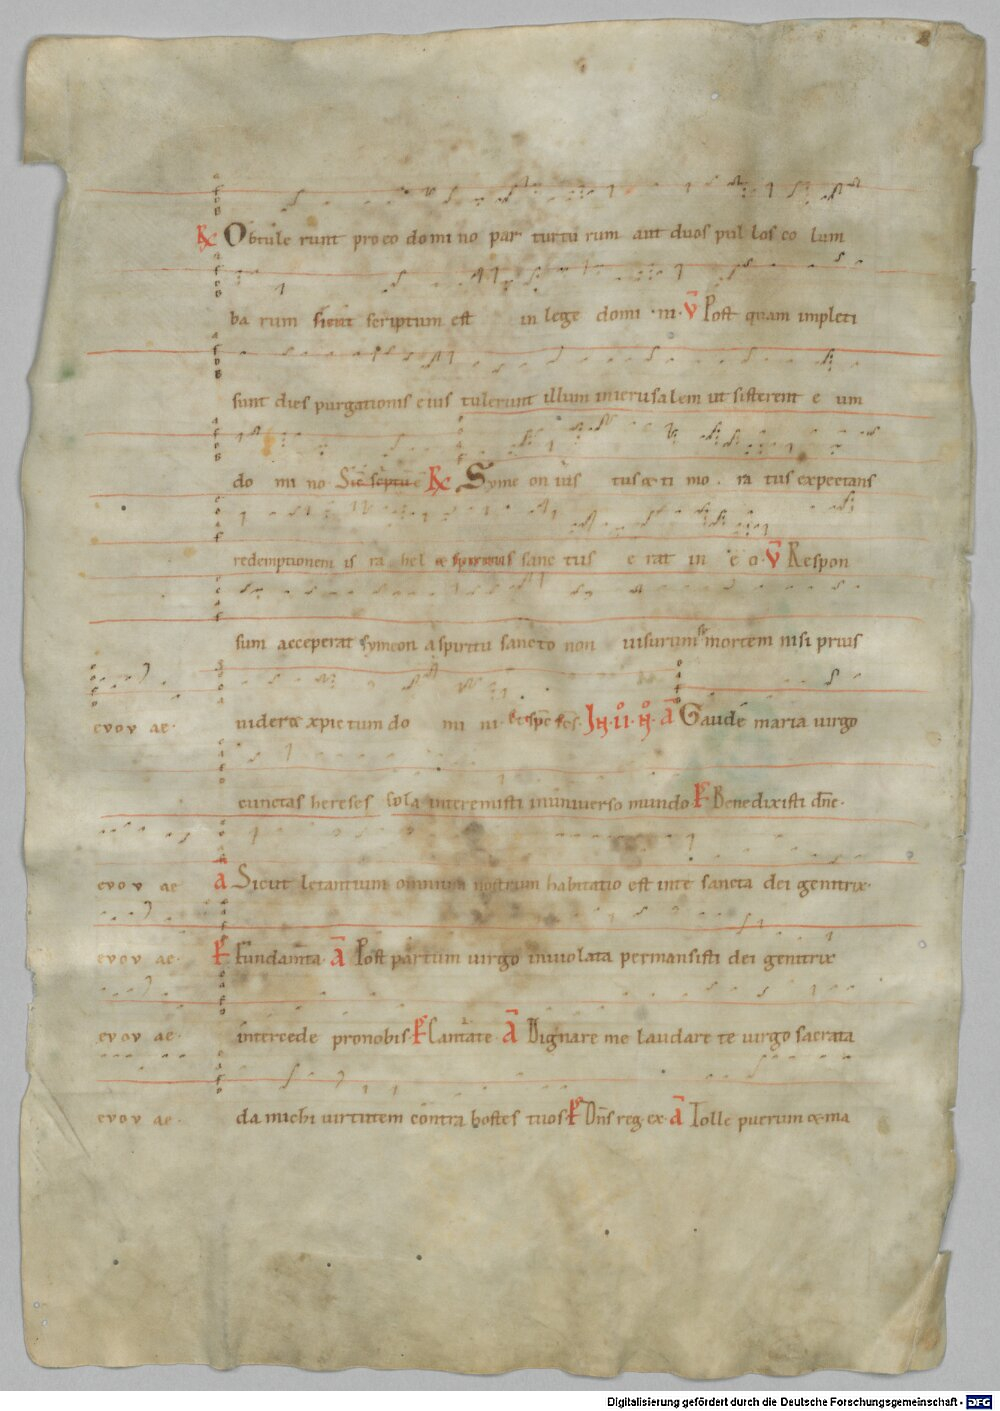 R Obtule runt pro eo domi no par turtu rum aut duos pul los co lum
ba rum sicut scriptum est in lege domi ni. V Post quam impleti
sunt dies purgationis eius tulerunt illum in ierusalem ut sisterent e um
do mi no Sic scptu e R Syme on ius tus & ti mo ra tus expectans
redemptionem is ra hel & spiritus sanc tus e rat in e o. V Respon
sum acceperat symeon a spiritu sancto non uisurum se mortem nisi prius
euouae. uider& xpictum do mi ni. A Gaude maria uirgo
cunctas hereses sola interemisti in uniuerso mundo P Benedixisti dne.
euouae A Sicut letantium omnium nostrum habitatio est in te sancta dei genitrix.
euouae. P Fundamta. A Post partum uirgo inuiolata permansisti dei genitrix
euouae. intercede pro nobis. P Cantate A Dignare me laudare te uirgo sacrata
euouae. da michi uirtutem contra hostes tuos. P Dns reg. ex. A Tolle puerum & ma
Digitalisierung gefördert durch die Deutsche Forschungsgemeinschaft - DFG